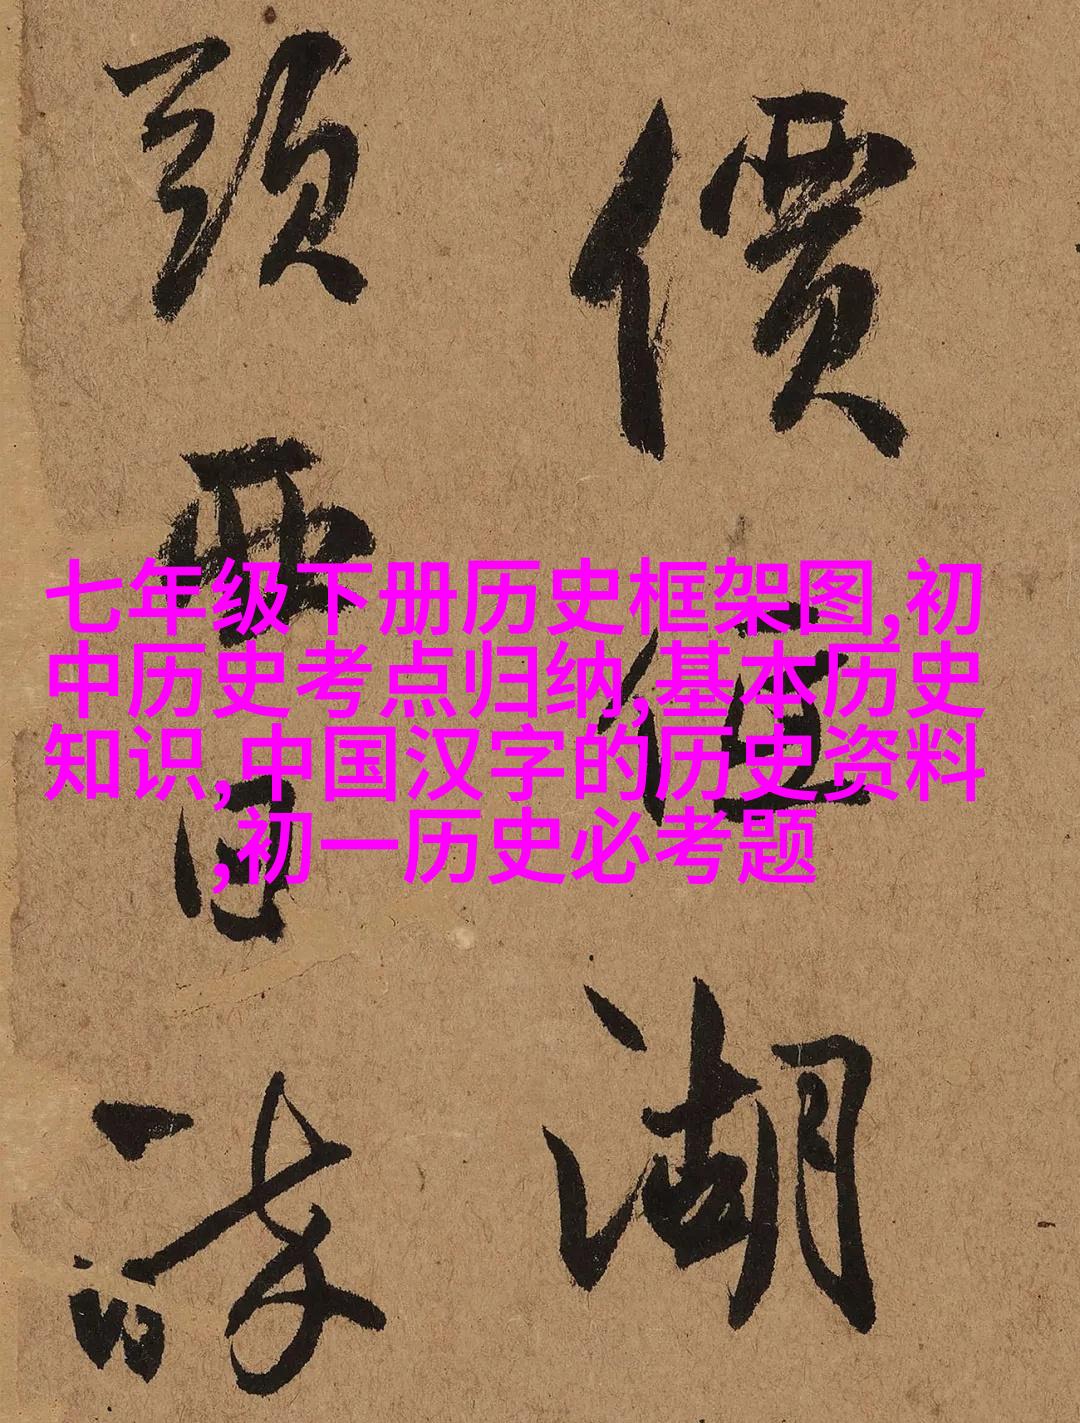 價但湖
頭要白詩
七年级下册历史框架图,初
中历史考点归纳,基本历史
知识,中国汉字的历史资料
,初一历史必考题